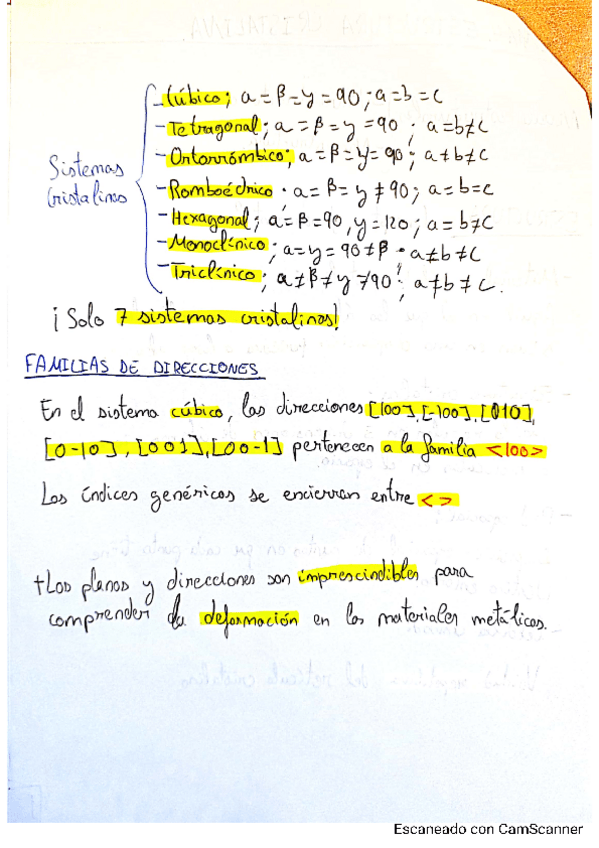 Sistemas Cristalinos
- Cúbico; α = β = γ = 90; a = b = c
- Tetragonal; α = β = γ = 90; a = b ≠ c
- Ortorrómbico; α = β = γ = 90; a ≠ b ≠ c
- Romboédrico; α = β = γ ≠ 90; a = b = c
- Hexagonal; α = β = 90, γ = 120; a = b ≠ c
- Monoclínico; α = γ = 90 ≠ β; a ≠ b ≠ c
- Triclínico; α ≠ β ≠ γ ≠ 90; a ≠ b ≠ c.
¡Solo 7 sistemas cristalinos!
FAMILIAS DE DIRECCIONES
En el sistema cúbico, las direcciones [100], [-100], [010],
[0-10], [001], [00-1] pertenecen a la familia <100>
Los índices genéricos se encierran entre < >
+ Los planos y direcciones son imprescindibles para
comprender la deformación en los materiales metálicos.
Escaneado con CamScanner